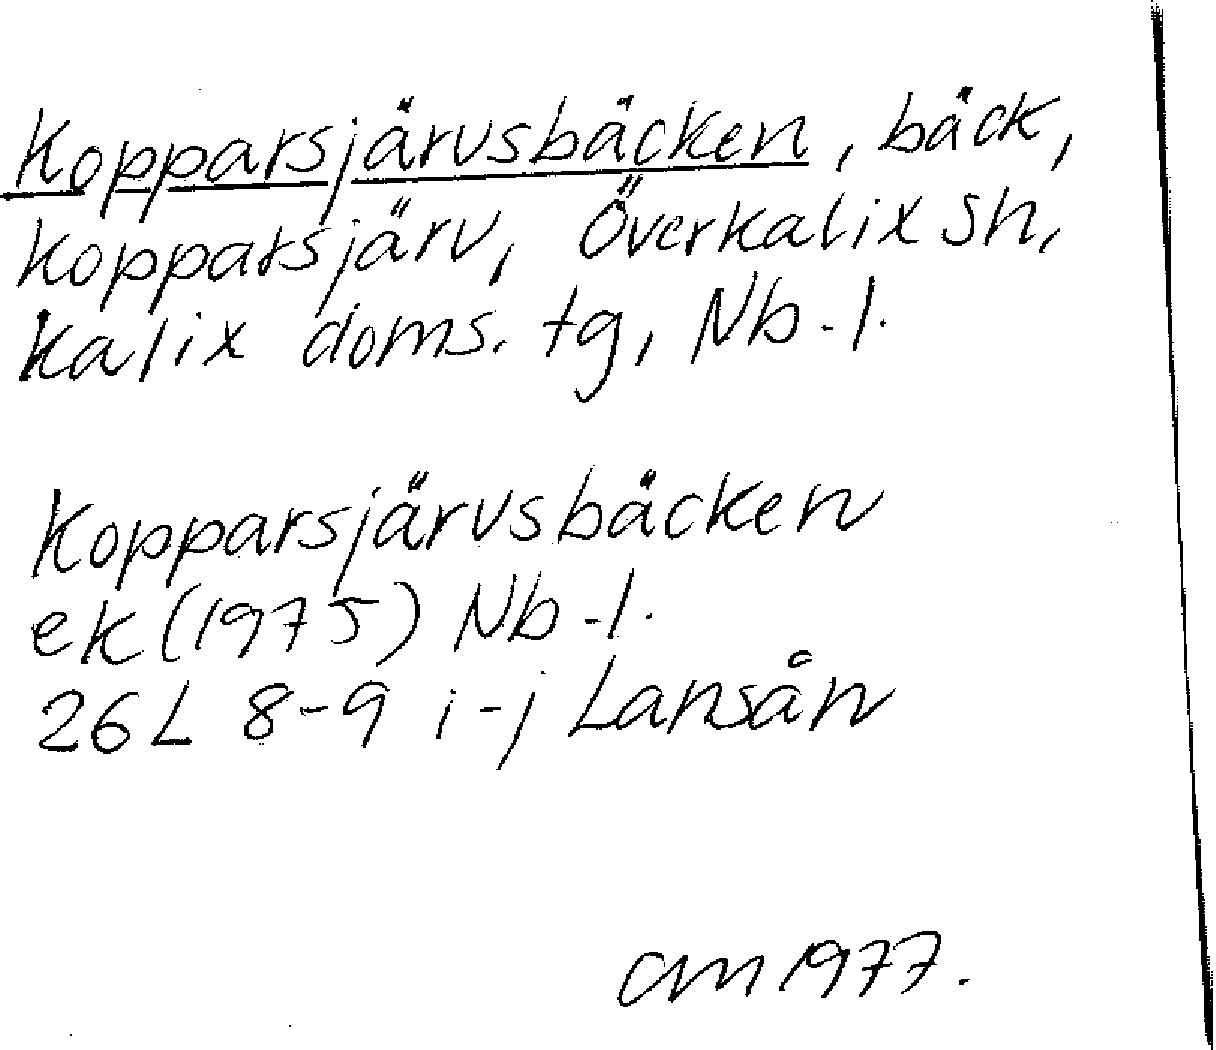 Kopparsjärvsbäcken, bäck,
Kopparsjärv, Överkalix sn,
Kalix doms. tg, Nb. l.
Kopparsjärvsbäcken
ek (1975) Nb. l.
26L 8-9 i-j Lansån
CM 1977.